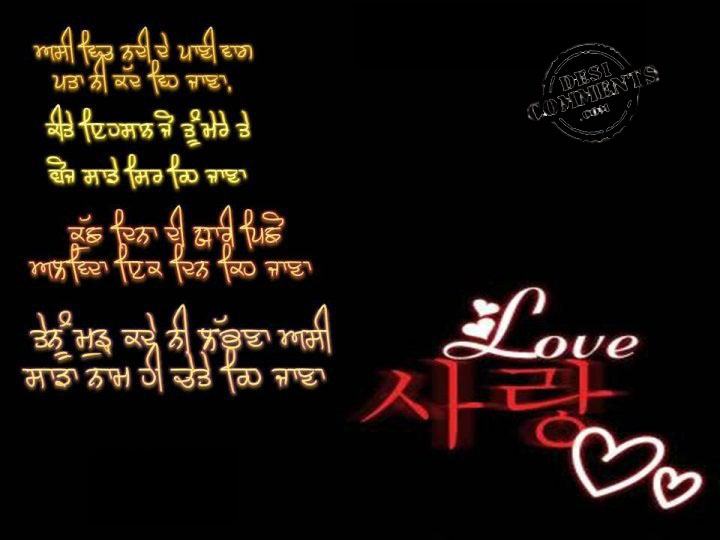 ਅਸੀ ਵਿਚ ਨਦੀ ਦੇ ਪਾਣੀ ਵਾਗ
ਪਤਾ ਨੀ ਕੱਦ ਵਿਹ ਜਾਣਾ,
ਕੀਤੇ ਇਹਸਾਨ ਜੋ ਤੂੰ ਮੇਰੇ ਤੇ
ਬੋਜ ਸਾਡੇ ਸਿਰ ਰਿਹ ਜਾਣਾ
ਕੁੱਛ ਦਿਨਾ ਦੀ ਯਾਰੀ ਪਿਛੋ
ਅਲਵਿਦਾ ਇਕ ਦਿਨ ਕਿਹ ਜਾਣਾ
ਤੇਨੂੰ ਮੁੜ ਕਦੇ ਨੀ ਲੱਭਣਾ ਅਸੀ
ਸਾਡਾ ਨਾਮ ਹੀ ਚੇਤੇ ਰਿਹ ਜਾਣਾ
DESI
COMMENTS
.COM
Love
사랑